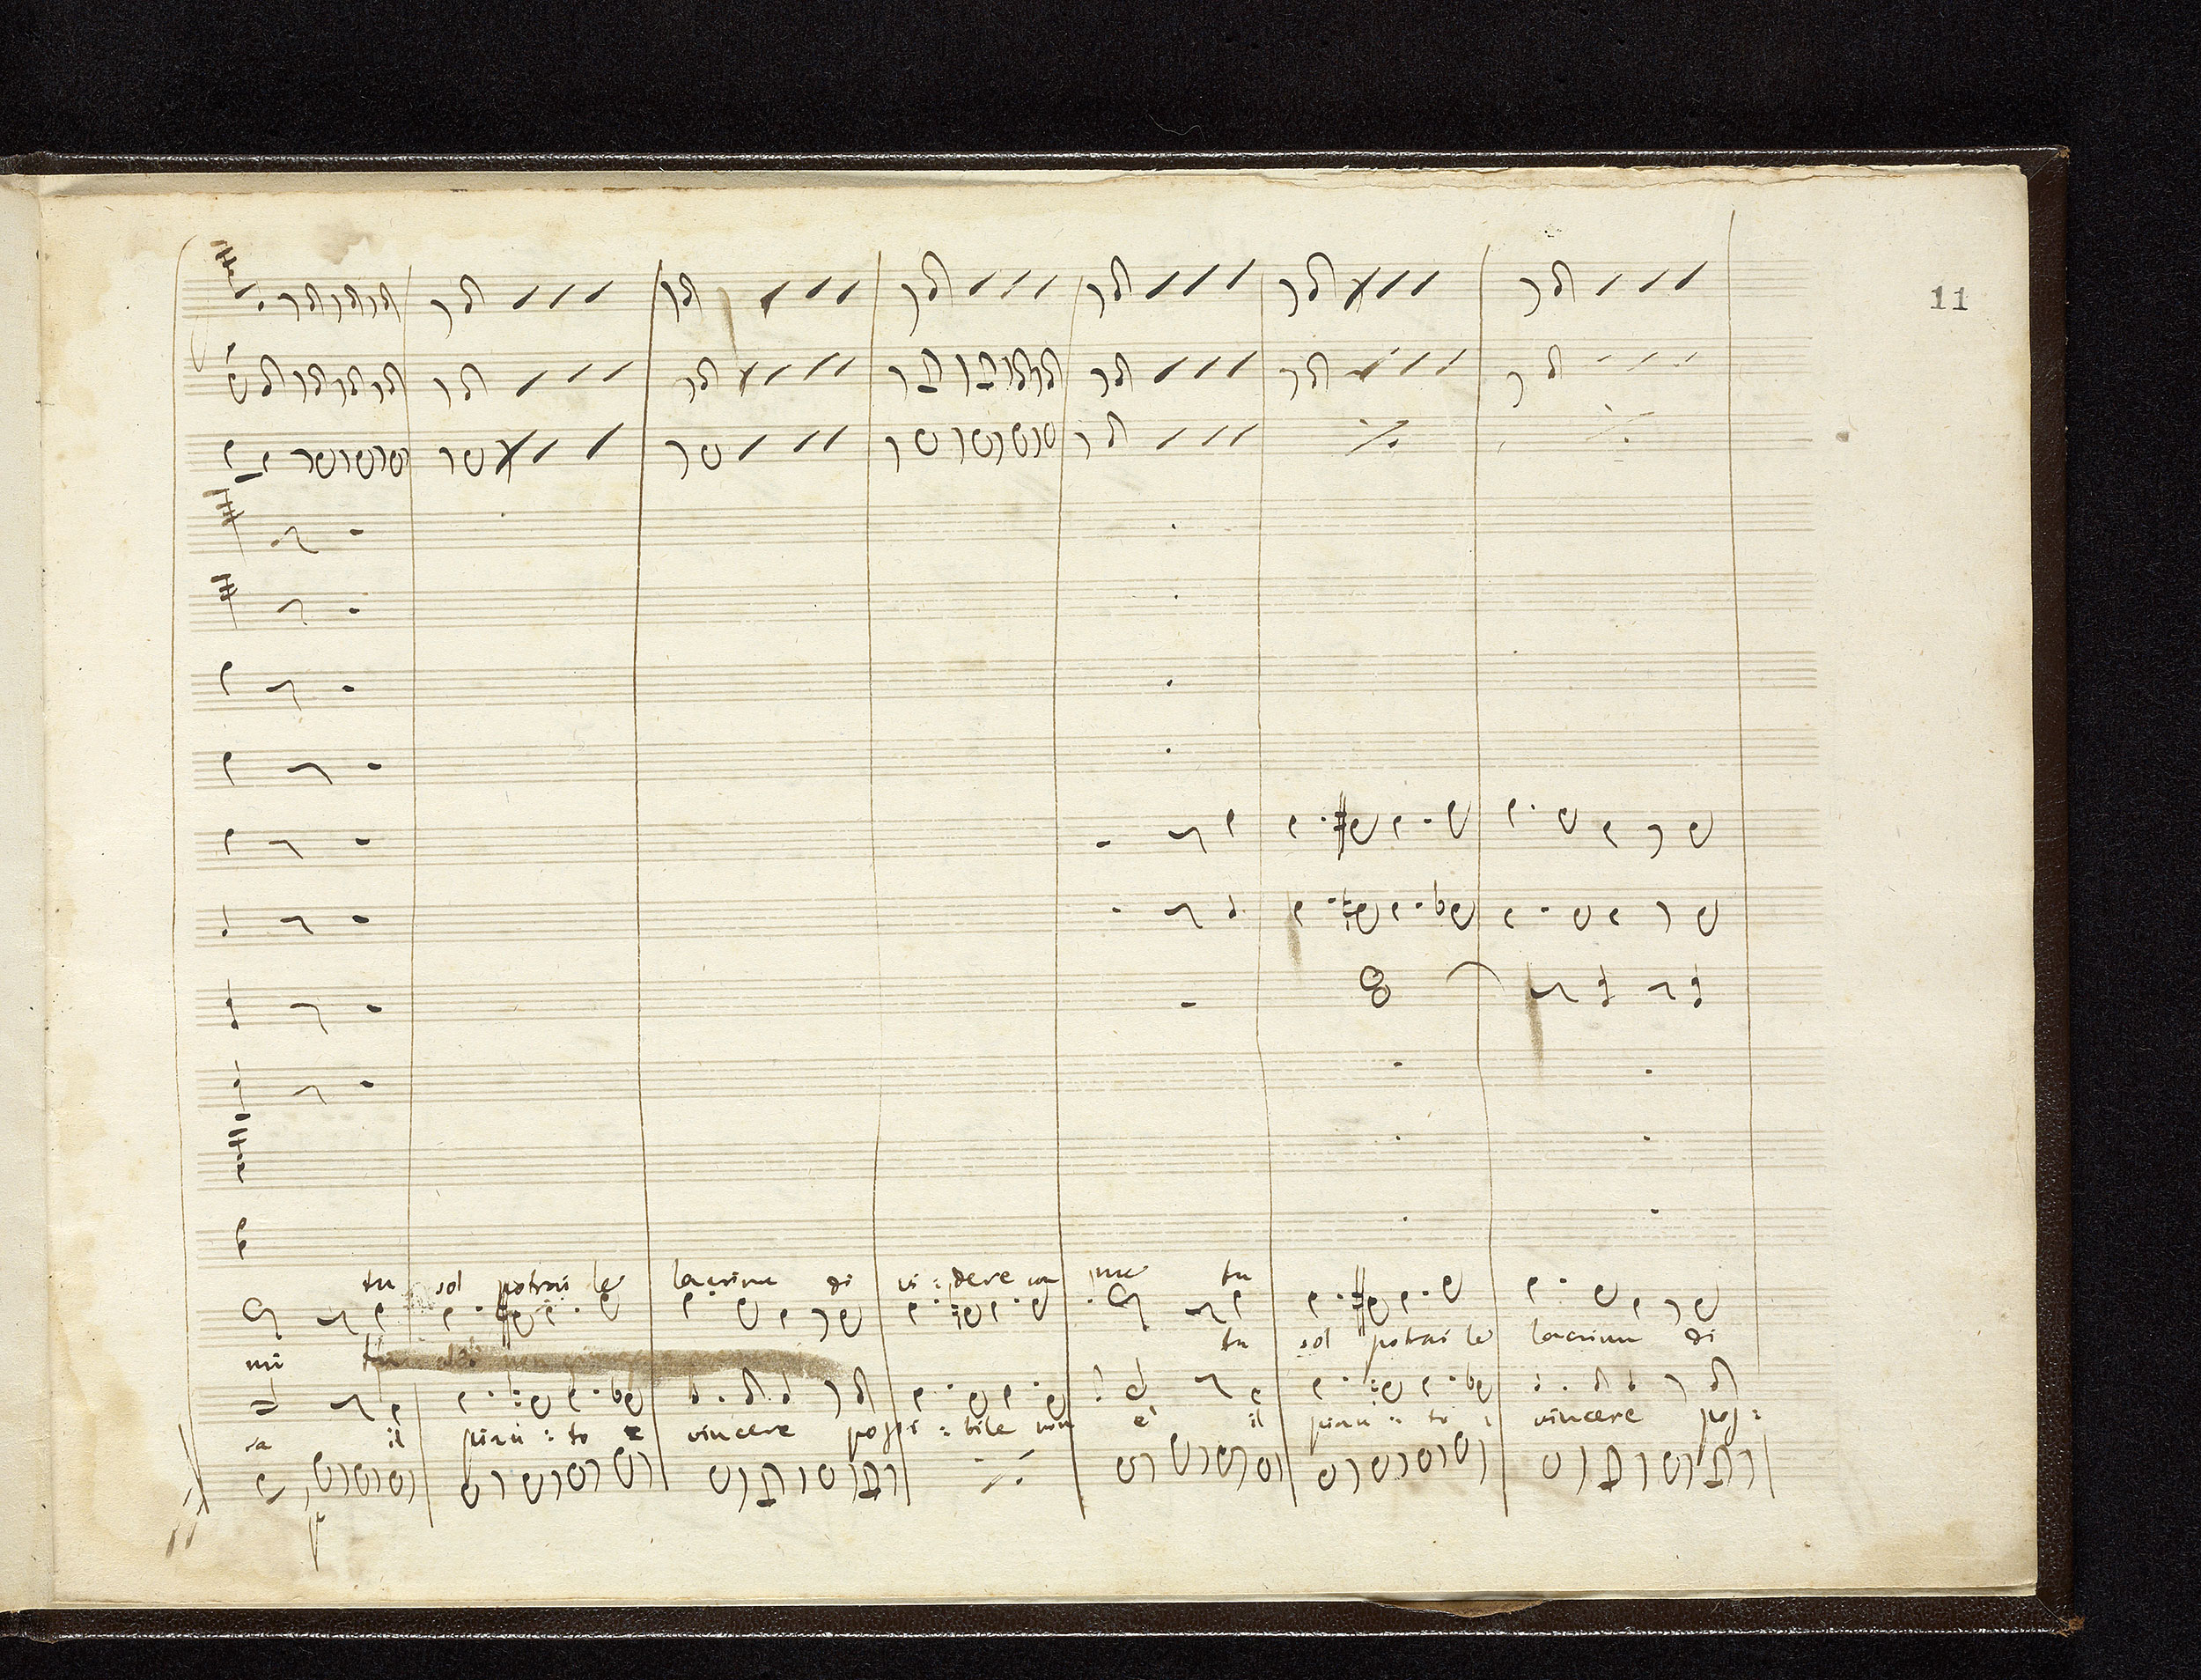 11
tu sol potrai le lacrime di vi : dere con me tu
mi tu sol potrai le lacrime di
sa il pian : to e vincere possi : bile non è il pian : to e vincere pos :